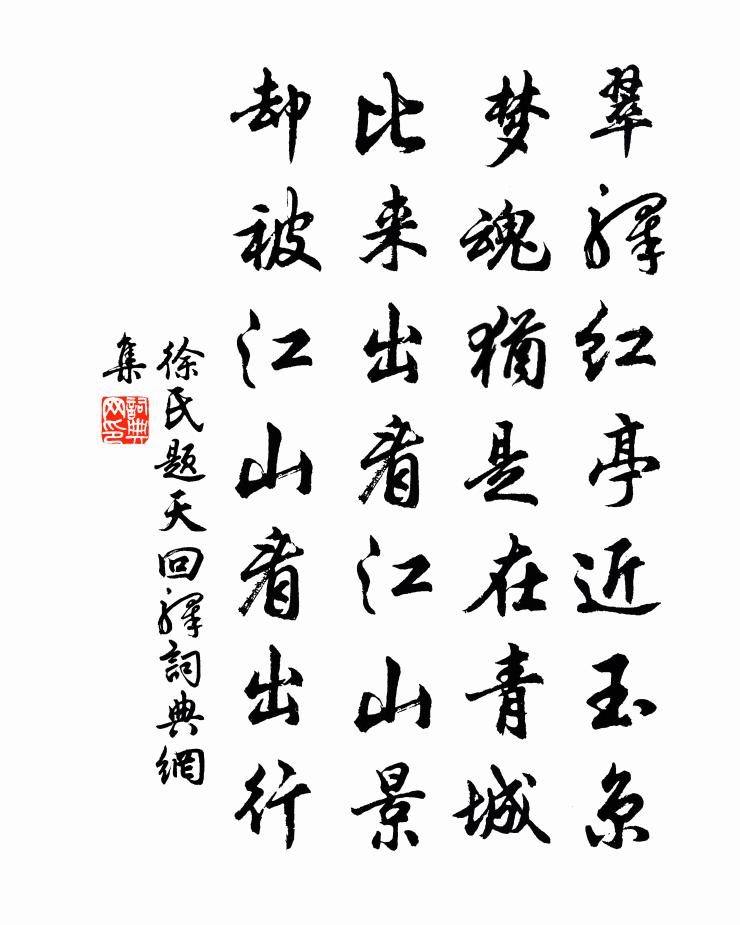 翠驛红亭近玉京
梦魂犹是在青城
比来出看江山景
却被江山看出行
徐氏题天回驛詞典網
集
詞典网印